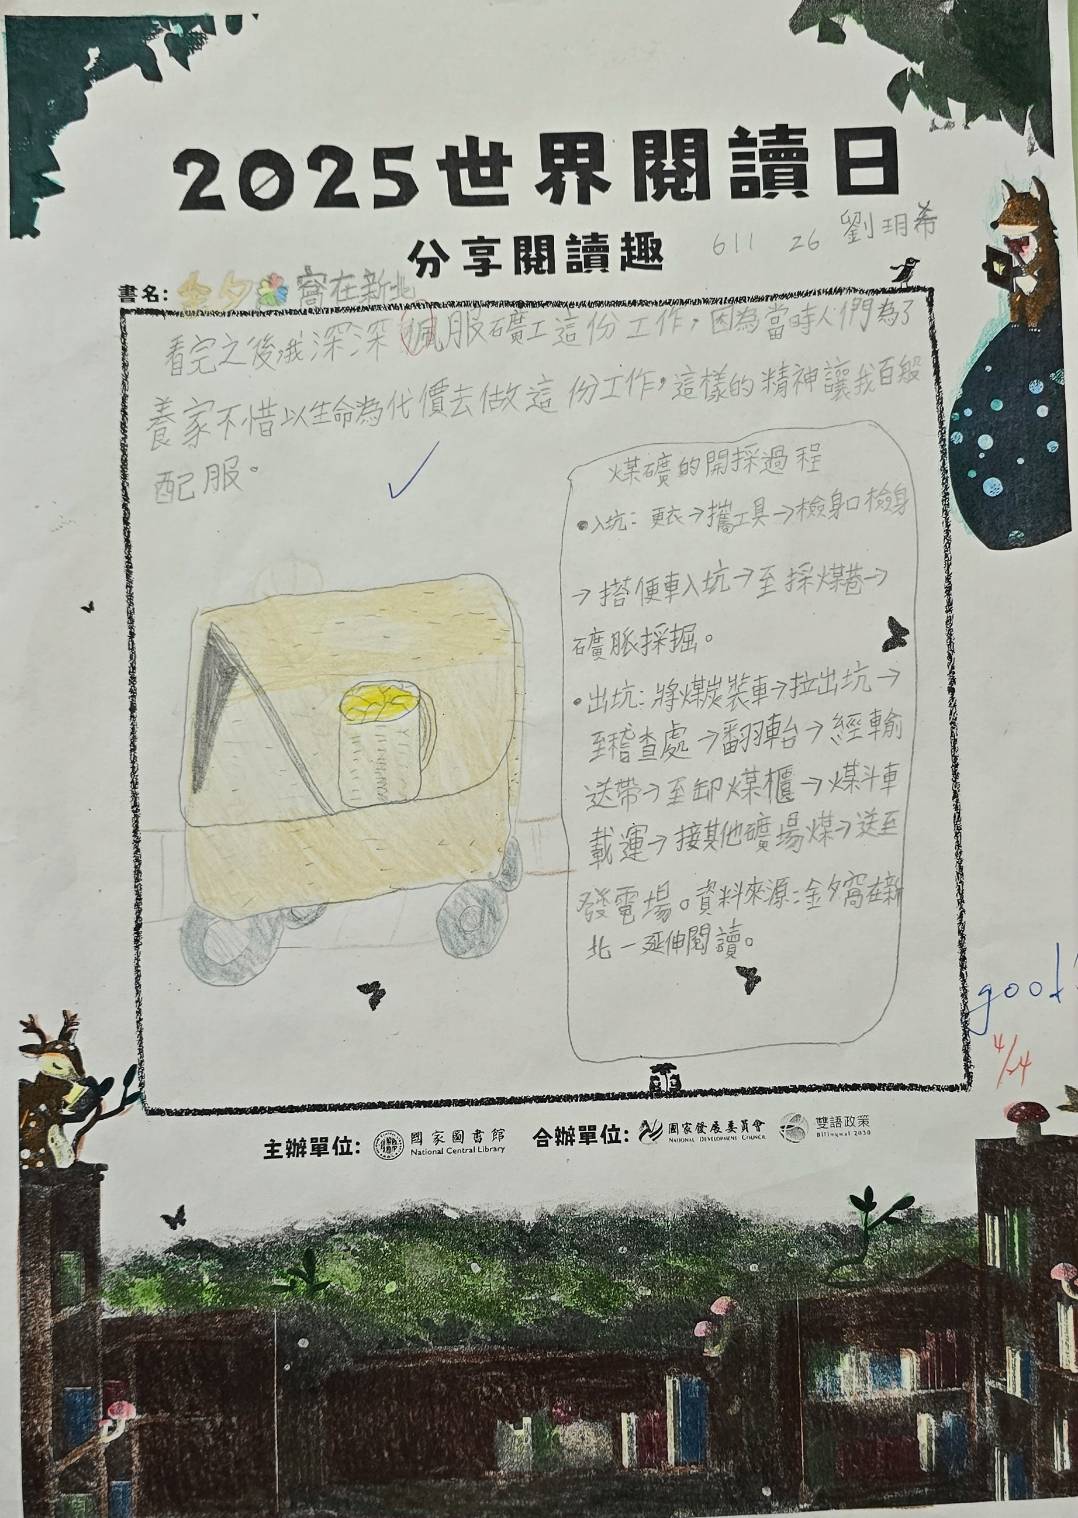 2025世界閱讀日
分享閱讀趣
611 26 劉玥希
書名：金夕窩在新北
看完之後，我深深佩服礦工這份工作，因為當時人們為了
養家不惜以生命為代價去做這份工作，這樣的精神讓我百般
配服。
煤礦的開採過程
•入坑：更衣→攜工具→檢身口檢身
→搭便車入坑→至採煤巷→
礦脈採掘。
•出坑：將煤炭裝車→拉出坑→
至稽查處→翻車台→經輸
送帶→至卸煤櫃→煤斗車
載運→接其他礦場煤→送至
發電場。資料來源：金夕窩在新
北—延伸閱讀。
good!
4/24
主辦單位：國家圖書館 National Central Library 合辦單位：國家發展委員會 NATIONAL DEVELOPMENT COUNCIL 雙語政策 Bilingual 2030